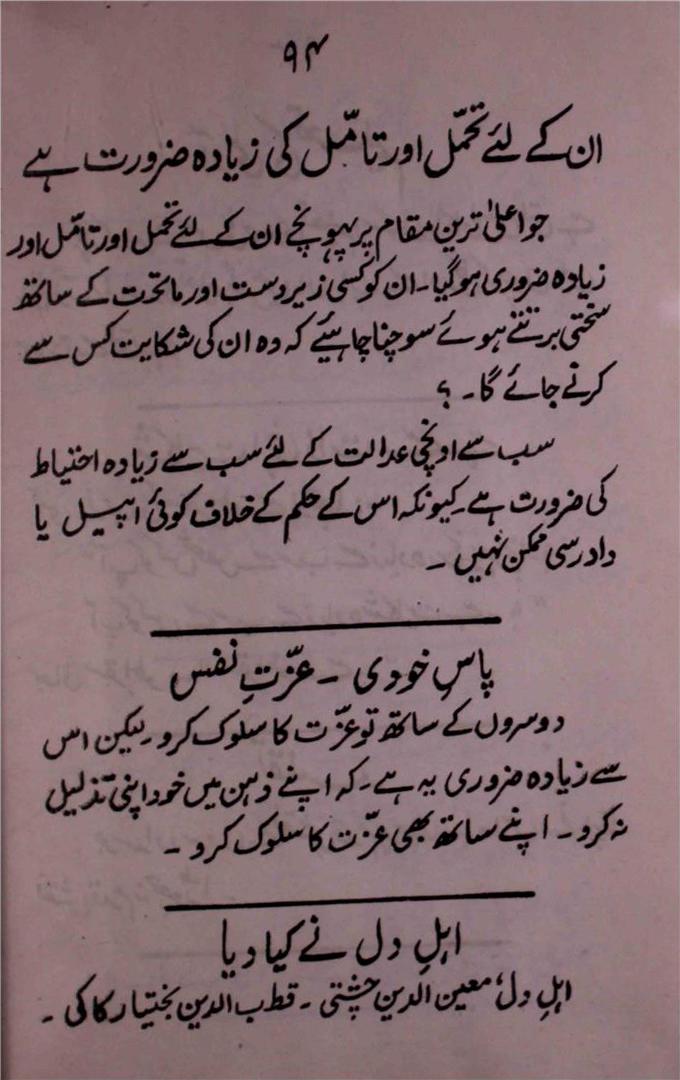 ۹۴
ان کے لئے تحمّل اور تامّل کی زیادہ ضرورت ہے
جو اعلیٰ ترین مقام پر پہونچے ان کے لئے تحمل اور تامّل اور
زیادہ ضروری ہوگیا۔ ان کو کسی زیردست اور ماتحت کے ساتھ
سختی برتتے ہوئے سوچنا چاہیئے کہ وہ ان کی شکایت کس سے
کرنے جائے گا۔ ؟
سب سے اونچی عدالت کے لئے سب سے زیادہ احتیاط
کی ضرورت ہے۔ کیونکہ اس کے حکم کے خلاف کوئی اپیل یا
دادرسی ممکن نہیں ۔
پاسِ خودی ۔ عزّتِ نفس
دوسروں کے ساتھ تو عزّت کا سلوک کرو۔ لیکن اس
سے زیادہ ضروری یہ ہے۔ کہ اپنے ذہن میں خود اپنی تذلیل
نہ کرو۔ اپنے ساتھ بھی عزّت کا سلوک کرو ۔
اہلِ دل نے کیا دیا
اہلِ دل، معین الدین چشتی ۔ قطب الدین بختیار کاکی ۔